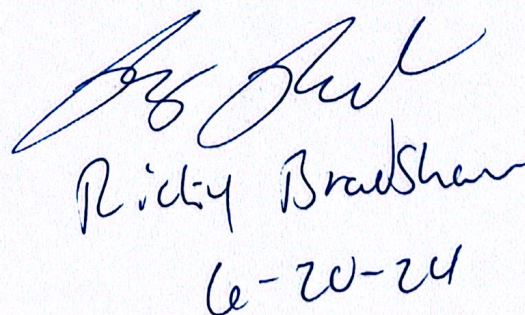 Ricky Bradshaw
6-20-24